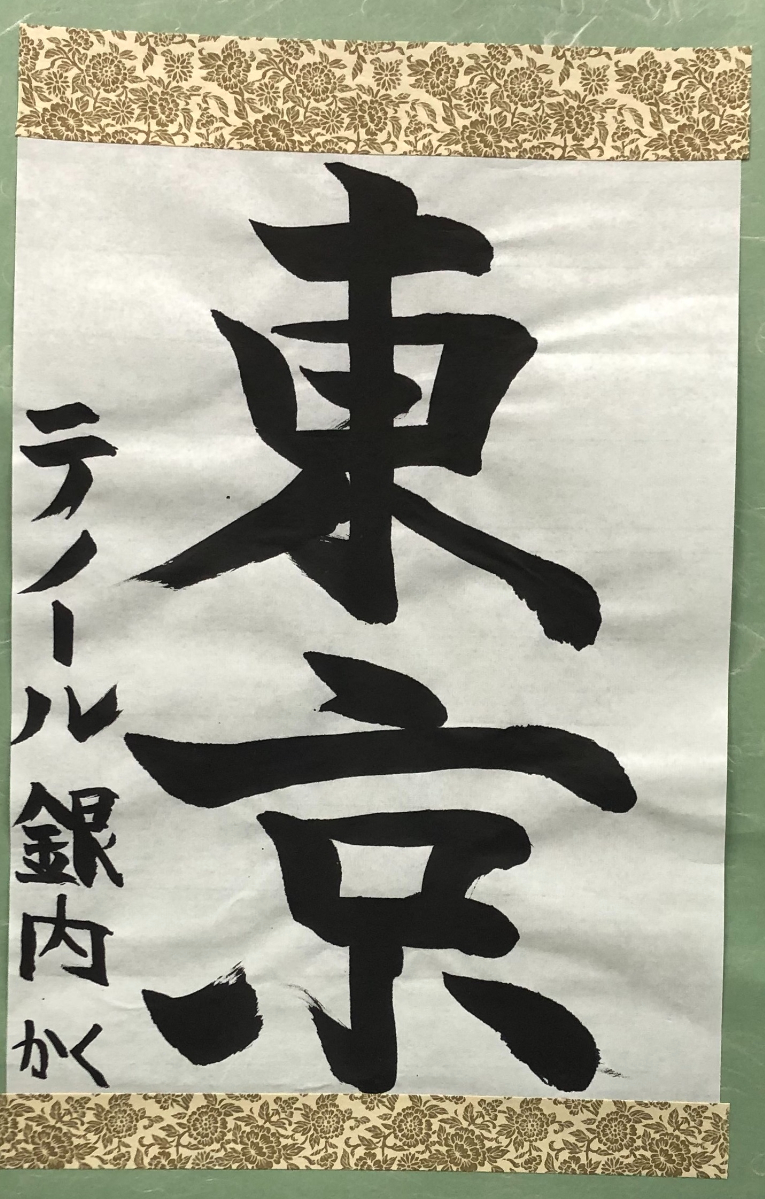 東京
テノール銀内かく